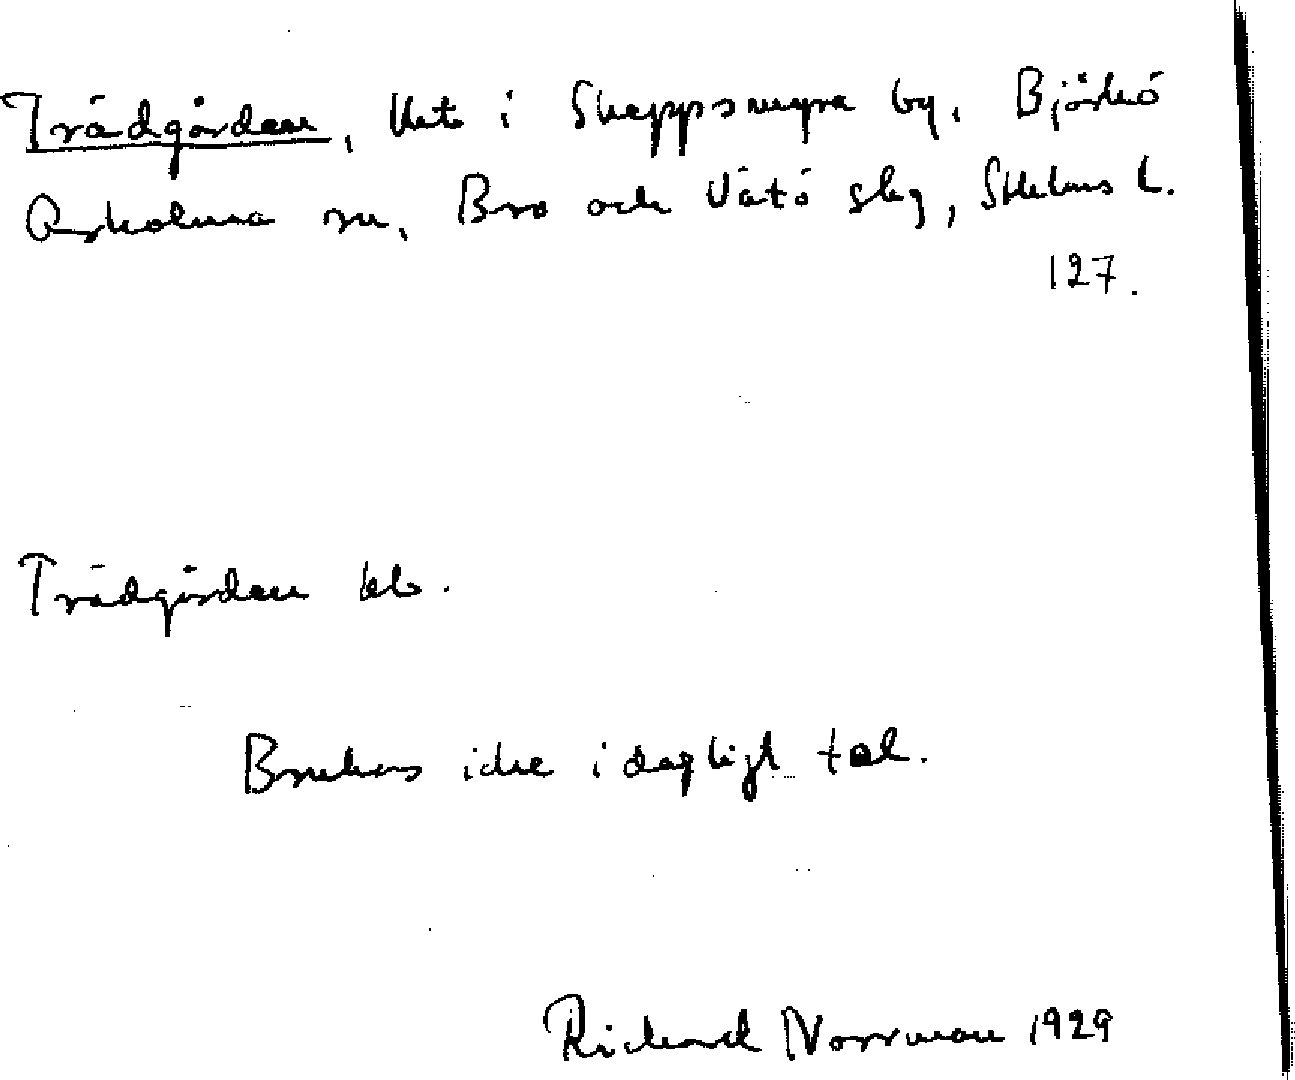 Trädgården, ktr i Skeppsmyra by, Björkö
Arholma sn, Bro och Vätö skg, Sthlms l.
127.
Trädgården ktr.
Brukas icke i dagligt tal.
Richard Norrman 1929